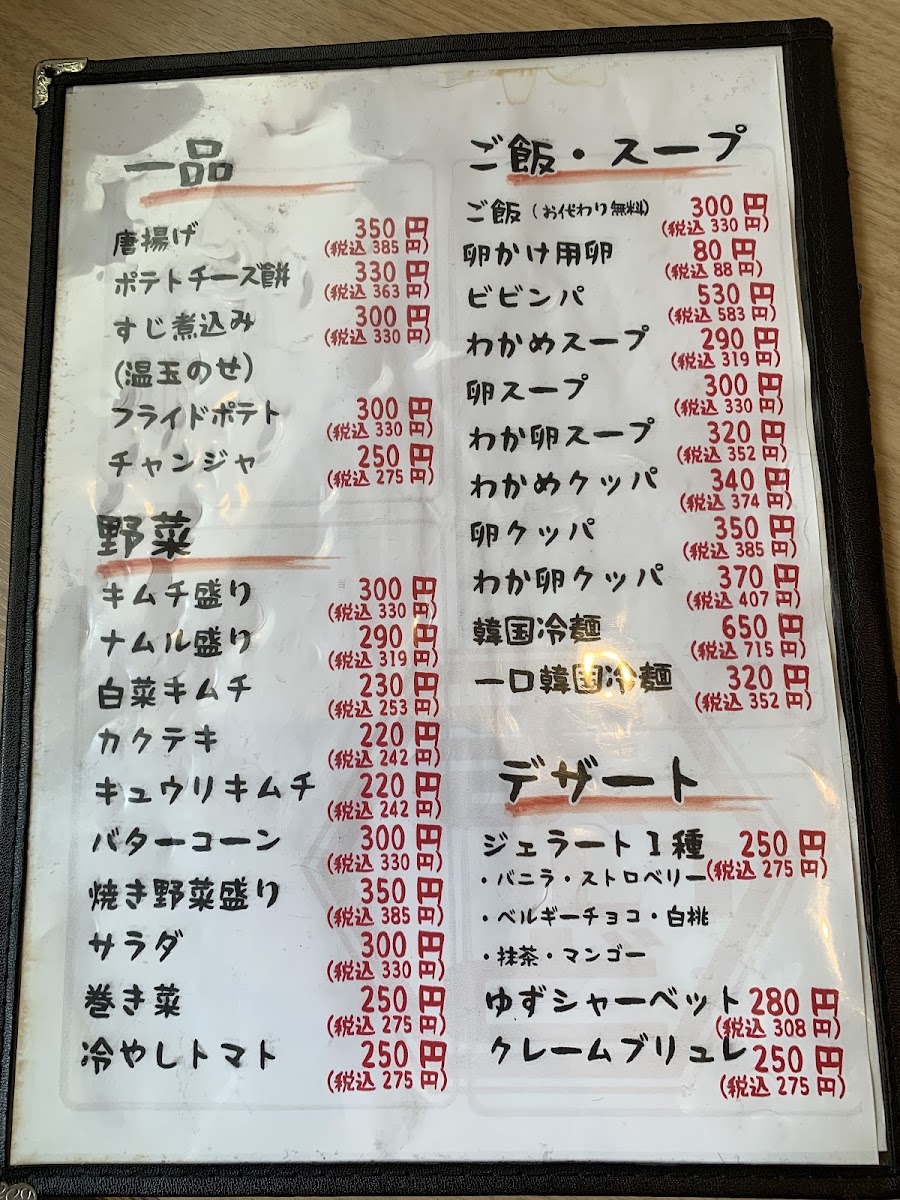 一品
唐揚げ 350円
(税込 385円)
ポテトチーズ餅 330円
(税込 363円)
すじ煮込み 300円
(税込 330円)
(温玉のせ)
フライドポテト 300円
(税込 330円)
チャンジャ 250円
(税込 275円)
野菜
キムチ盛り 300円
(税込 330円)
ナムル盛り 290円
(税込 319円)
白菜キムチ 230円
(税込 253円)
カクテキ 220円
(税込 242円)
キュウリキムチ 220円
(税込 242円)
バターコーン 300円
(税込 330円)
焼き野菜盛り 350円
(税込 385円)
サラダ 300円
(税込 330円)
巻き菜 250円
(税込 275円)
冷やしトマト 250円
(税込 275円)
ご飯・スープ
ご飯(お代わり無料) 300円
(税込 330円)
卵かけ用卵 80円
(税込 88円)
ビビンパ 530円
(税込 583円)
わかめスープ 290円
(税込 319円)
卵スープ 300円
(税込 330円)
わか卵スープ 320円
(税込 352円)
わかめクッパ 340円
(税込 374円)
卵クッパ 350円
(税込 385円)
わか卵クッパ 370円
(税込 407円)
韓国冷麺 650円
(税込 715円)
一口韓国冷麺 320円
(税込 352円)
デザート
ジェラート1種 250円
(税込 275円)
・バニラ・ストロベリー
・ベルギーチョコ・白桃
・抹茶・マンゴー
ゆずシャーベット 280円
(税込 308円)
クレームブリュレ 250円
(税込 275円)